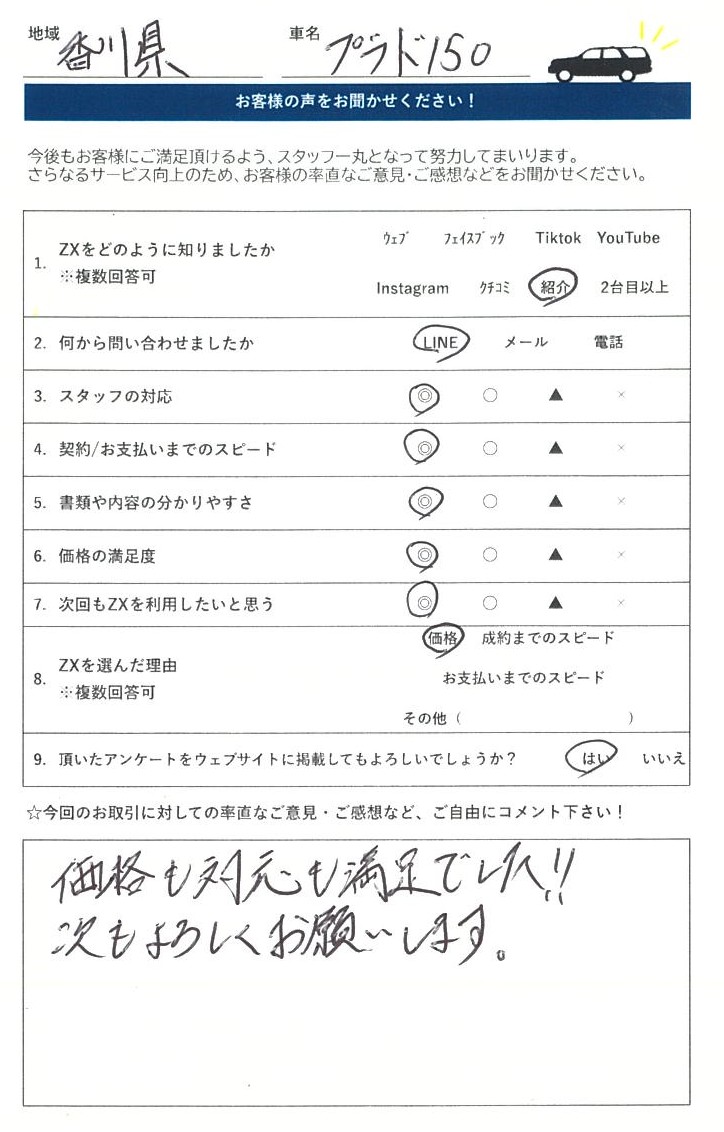 地域 香川県 車名 プラド150
お客様の声をお聞かせください！
今後もお客様にご満足頂けるよう、スタッフ一丸となって努力してまいります。
さらなるサービス向上のため、お客様の率直なご意見・ご感想などをお聞かせください。
1. ZXをどのように知りましたか
※複数回答可
ｳｪﾌﾞ ﾌｪｲｽﾌﾞｯｸ Tiktok YouTube
Instagram ｸﾁｺﾐ 紹介 2台目以上
2. 何から問い合わせましたか LINE メール 電話
3. スタッフの対応 ◎ ○ ▲ ×
4. 契約/お支払いまでのスピード ◎ ○ ▲ ×
5. 書類や内容の分かりやすさ ◎ ○ ▲ ×
6. 価格の満足度 ◎ ○ ▲ ×
7. 次回もZXを利用したいと思う ◎ ○ ▲ ×
8. ZXを選んだ理由
※複数回答可
価格 成約までのスピード
お支払いまでのスピード
その他（ ）
9. 頂いたアンケートをウェブサイトに掲載してもよろしいでしょうか？ はい いいえ
☆今回のお取引に対しての率直なご意見・ご感想など、ご自由にコメント下さい！
価格も対応も満足でした!!
次もよろしくお願いします。